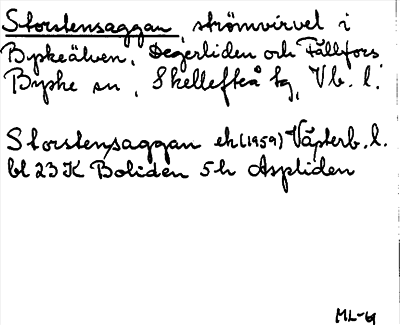 Storstensaggan, strömvirvel i
Byskeälven, Degerliden och Fällfors
Byske sn, Skellefteå tg, Vb. l.
Storstensaggan ek (1959) Västerb. l.
bl 23 K Boliden 5h Aspliden